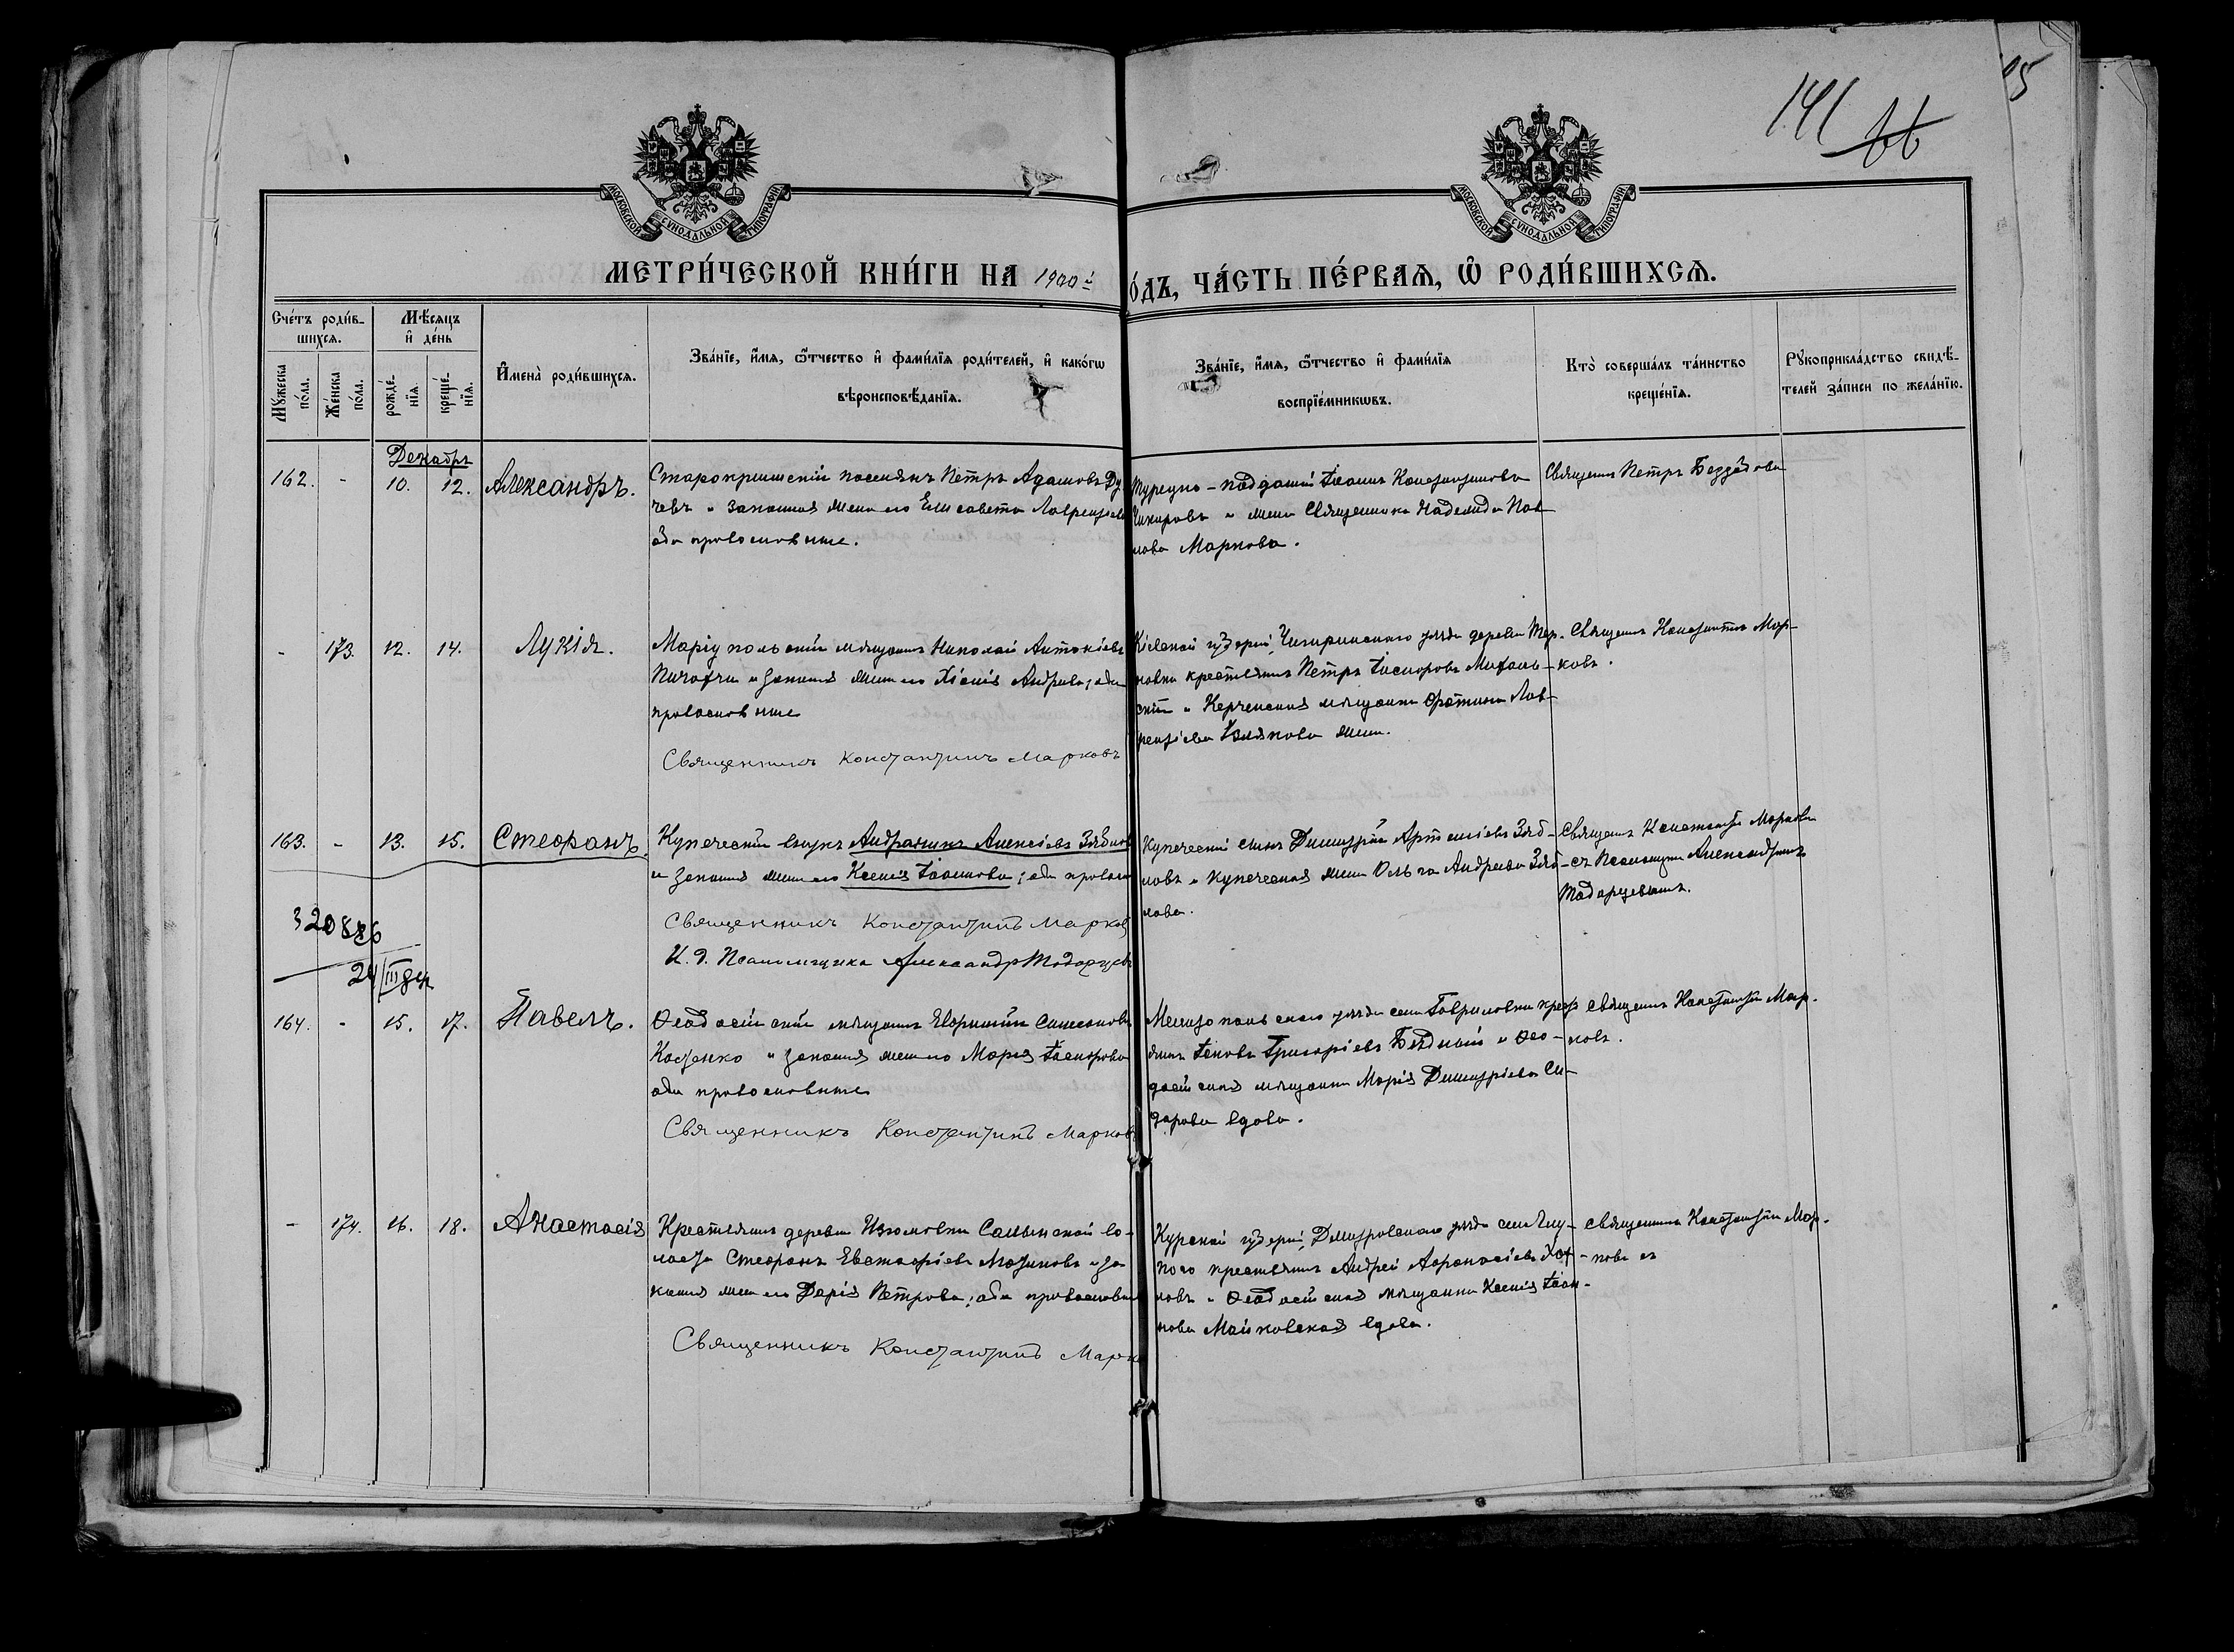 141 66
95
МОСКОВСКОЙ СѴНОДАЛЬНОЙ ТИПОГРАФІИ
МОСКОВСКОЙ СѴНОДАЛЬНОЙ ТИПОГРАФІИ
МЕТРИ́ЧЕСКОЙ КНИ́ГИ НА 1900й
О́ДЪ, ЧА́СТЬ ПЕ́РВАѦ, Ѡ҃ РОДИ́ВШИХСѦ.
Сче́тъ роди́в-
шихсѧ.
Мѣ́сѧцъ
и҆ де́нь
Мꙋ́жеска по́ла.
Же́нска по́ла.
рожде́-
нїѧ.
креще́-
нїѧ.
И҆мена̀ роди́вшихсѧ.
Зва́нїе, и҆́мѧ, ѻ҆́тчество и҆ фами́лїѧ роди́телей, и҆ како́гѡ
вѣроисповѣ́данїѧ.
Зва́нїе, и҆́мѧ, ѻ҆́тчество и҆ фами́лїѧ
воспрїе́мникѡвъ.
Кто̀ соверша́лъ та́инство
креще́нїѧ.
Рꙋкоприкла́дство свидѣ́-
телей за́писи по жела́нїю.
Декабрь
162. - 10. 12. Александръ.
Старокрымскій поселянъ Петръ Адамовъ
и законная жена его Елисавета Лаврентіева
оба православные.
Турецко-подданный Іоаннъ Константиновъ
и жена Священника Надежда Пав-
лова Маркова.
Священ. Петръ
- 173. 12. 14. Лукія.
Маріупольскій мѣщанинъ Николай Антоніевъ
и законная жена его Андреева; оба
православные
Священникъ Константинъ Марковъ
Кіевской губерніи, Чигиринскаго уѣзда деревни Тер-
новки крестьянинъ Петръ Михаль-
скій и Керченская мѣщанка Фотинія Лав-
рентіева жена.
Священ. Константинъ Мар-
ковъ.
163. - 13. 15. Стефанъ.
Купеческій внукъ Андроникъ Алексіевъ Зябловъ
и законная жена его Ксенія Іоаннова; оба правосл
Священникъ Константинъ Марков
И. д. Псаломщика Александръ Тодорцевъ
Купеческій сынъ Димитрій Артеміевъ Зяб-
ловъ и купеческая жена Ольга Андреева Зяб-
лова.
Священ. Константинъ Марковъ
съ Псаломщик. Александромъ
Тодорцевымъ.
320886
24/III
164. - 15. 17. Павелъ.
Ѳеодосійскій мѣщанинъ Евфимій Симеоновъ
Костенко и законная жена его Марія
оба православные
Священникъ Константинъ Марков
Мелитопольскаго уѣзда села Гавриловки крест
янинъ Іаковъ Григоріевъ Бѣдный и Ѳео-
досійская мѣщанка Марія Димитріева Си-
дорова вдова.
Священ. Константинъ Мар-
ковъ.
- 174. 16. 18. Анастасія
Крестьянинъ деревни Изюмовки Салынской во-
лости Стефанъ Евстафіевъ и за-
конная жена его Дарія Петрова; оба православные
Священникъ Константинъ Марко
Курской губерніи, Дмитровскаго уѣзда села
крестьянинъ Андрей Афанасіевъ
и Ѳеодосійская мѣщанка Ксенія Іоан-
нова Майковская вдова.
Священникъ Константинъ Мар-
ковъ